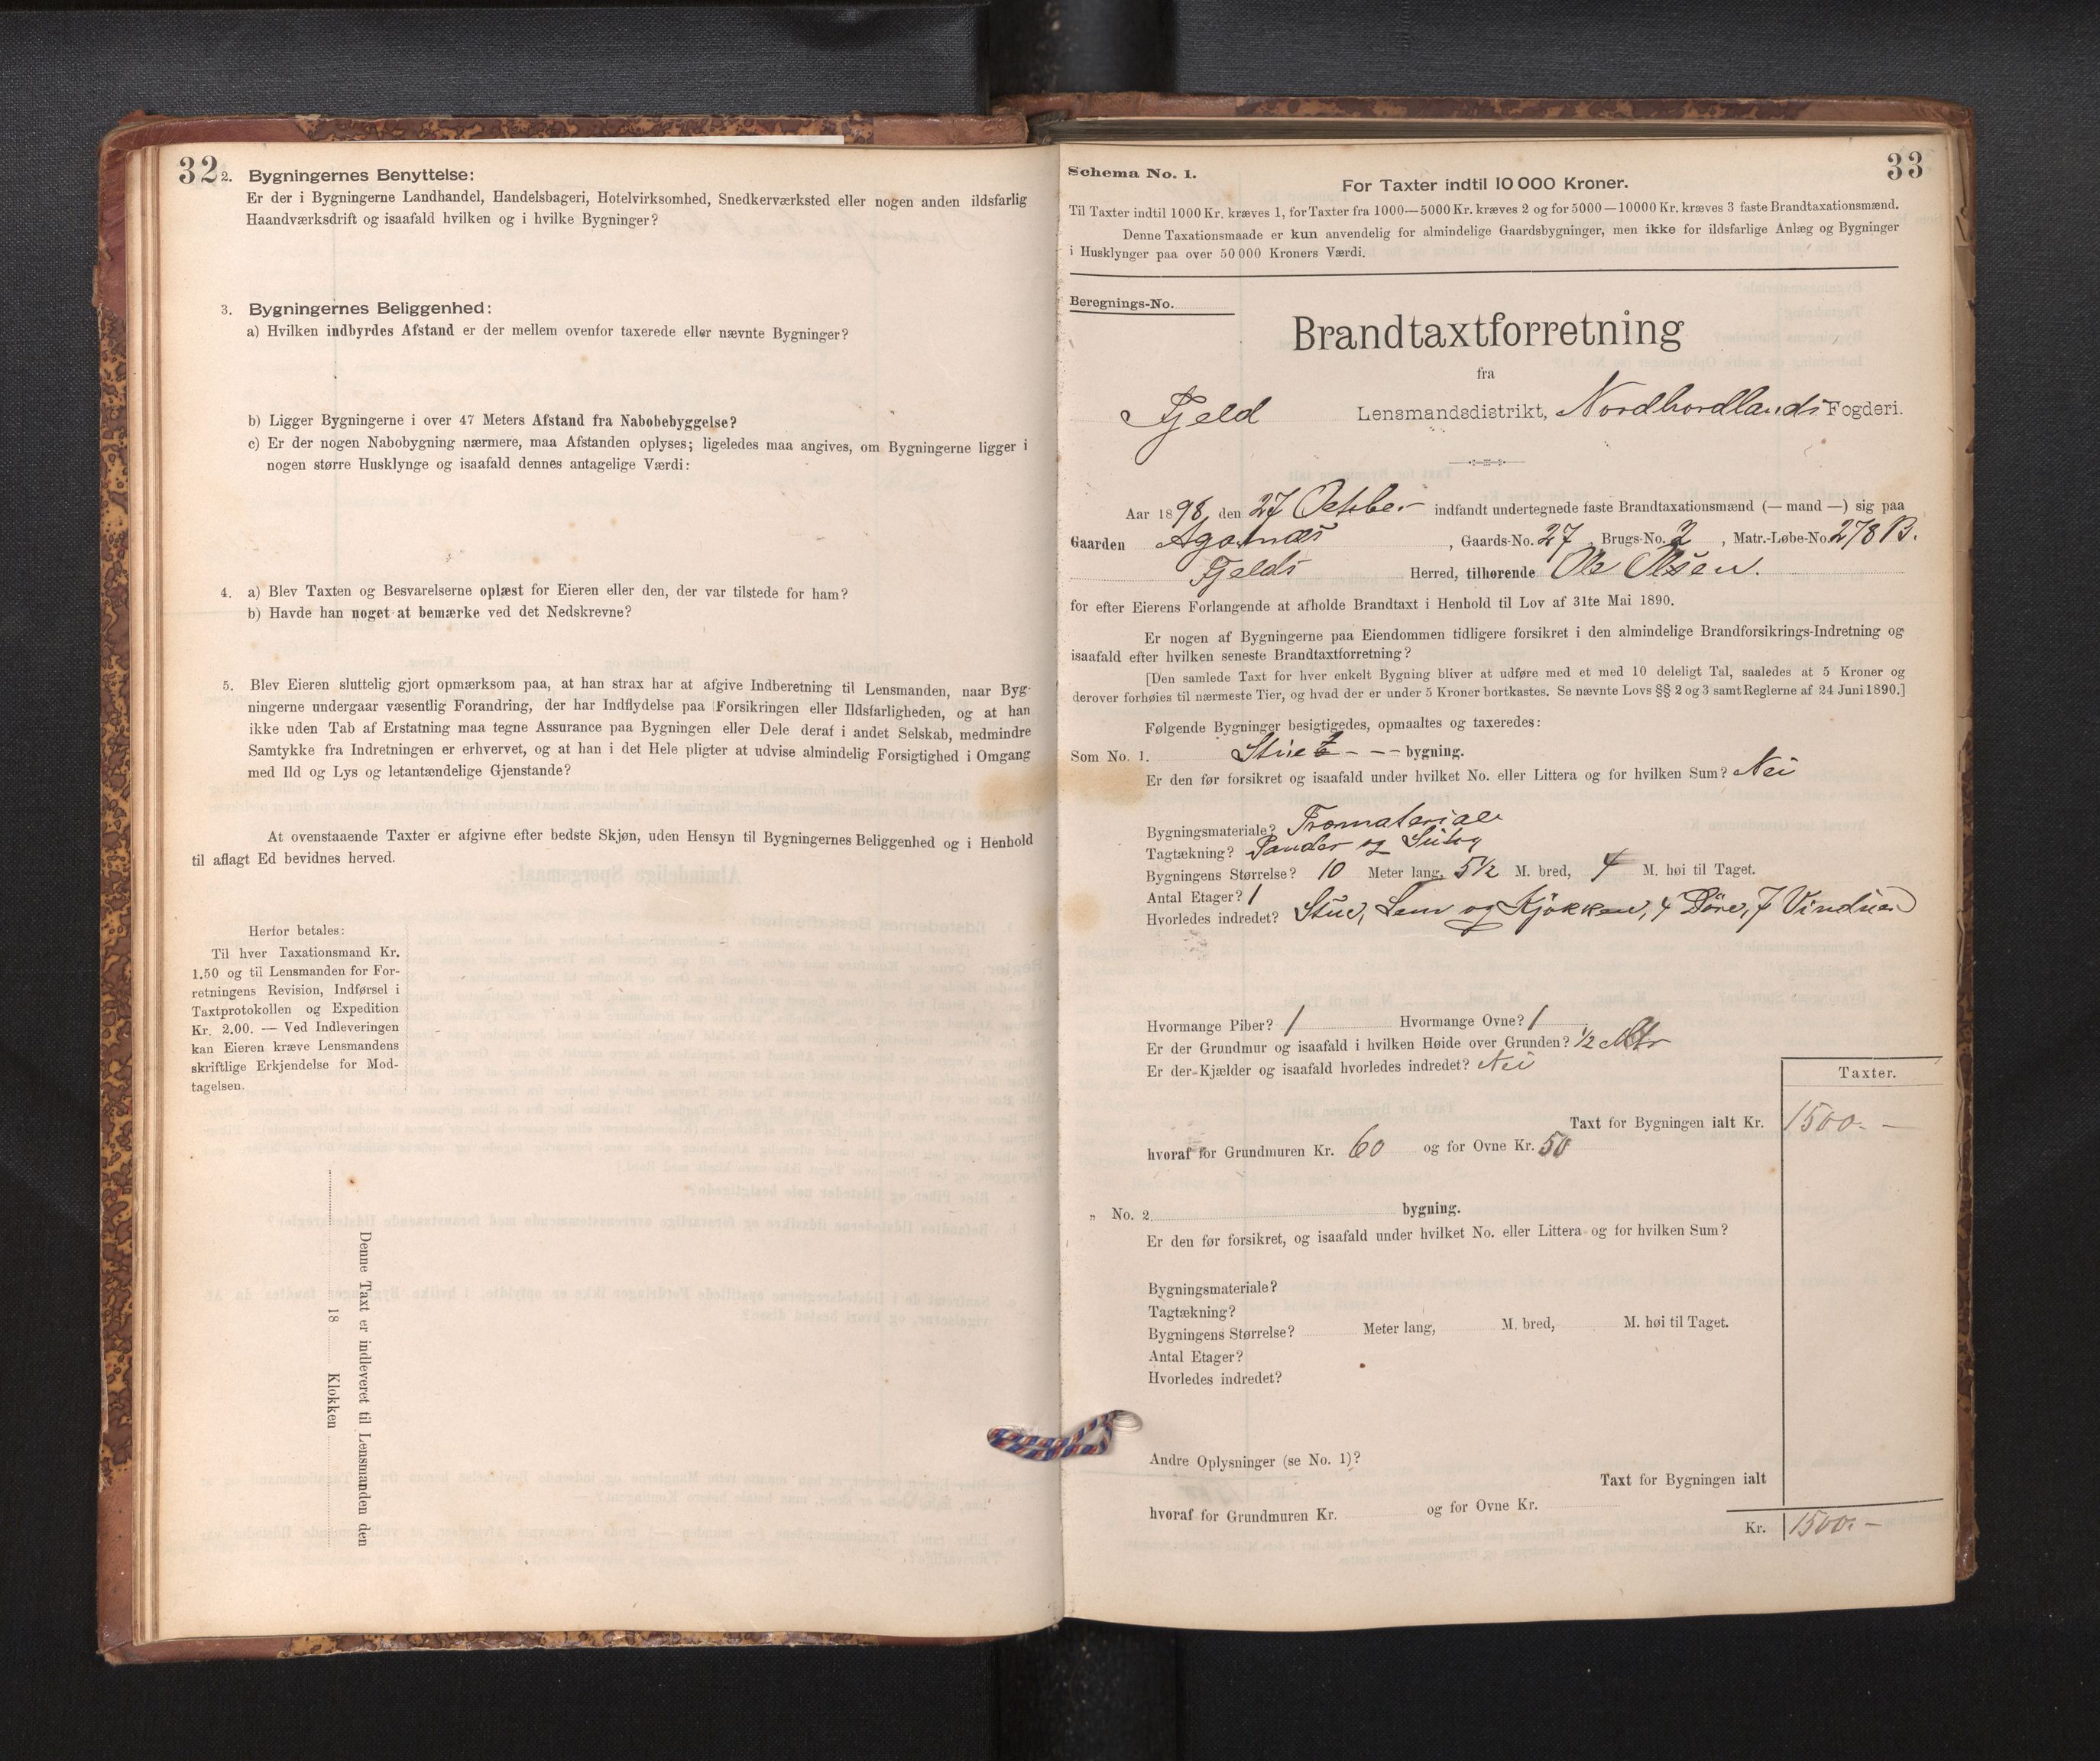 32
2. Bygningernes Benyttelse:
Er der i Bygningerne Landhandel, Handelsbageri, Hotelvirksomhed, Snedkerværksted eller nogen anden ildsfarlig
Haandværksdrift og isaafald hvilken og i hvilke Bygninger?
3. Bygningernes Beliggenhed:
a) Hvilken indbyrdes Afstand er der mellem ovenfor taxerede eller nævnte Bygninger?
b) Ligger Bygningerne i over 47 Meters Afstand fra Nabobebyggelse?
c) Er der nogen Nabobygning nærmere, maa Afstanden oplyses; ligeledes maa angives, om Bygningerne ligger i
nogen større Husklynge og isaafald dennes antagelige Værdi:
4. a) Blev Taxten og Besvarelserne oplæst for Eieren eller den, der var tilstede for ham?
b) Havde han noget at bemærke ved det Nedskrevne?
5. Blev Eieren sluttelig gjort opmærksom paa, at han strax har at afgive Indberetning til Lensmanden, naar Byg-
ningerne undergaar væsentlig Forandring, der har Indflydelse paa Forsikringen eller Ildsfarligheden, og at han
ikke uden Tab af Erstatning maa tegne Assurance paa Bygningen eller Dele deraf i andet Selskab, medmindre
Samtykke fra Indretningen er erhvervet, og at han i det Hele pligter at udvise almindelig Forsigtighed i Omgang
med Ild og Lys og letantændelige Gjenstande?
At ovenstaaende Taxter er afgivne efter bedste Skjøn, uden Hensyn til Bygningernes Beliggenhed og i Henhold
til aflagt Ed bevidnes herved.
Herfor betales:
Til hver Taxationsmand Kr.
1.50 og til Lensmanden for For-
retningens Revision, Indførsel i
Taxtprotokollen og Expedition
Kr. 2.00. — Ved Indleveringen
kan Eieren kræve Lensmandens
skriftlige Erkjendelse for Mod-
tagelsen.
Denne Taxt er indleveret til Lensmanden den
18 Klokken
33
Schema No. 1.
For Taxter indtil 10 000 Kroner.
Til Taxter indtil 1000 Kr. kræves 1, for Taxter fra 1000—5000 Kr. kræves 2 og for 5000—10000 Kr. kræves 3 faste Brandtaxationsmænd.
Denne Taxationsmaade er kun anvendelig for almindelige Gaardsbygninger, men ikke for ildsfarlige Anlæg og Bygninger
i Husklynger paa over 50 000 Kroners Værdi.
Beregnings-No.
Brandtaxtforretning
fra
Fjeld Lensmandsdistrikt, Nordhordlands Fogderi.
Aar 1898, den 27 October indfandt undertegnede faste Brandtaxationsmænd (— mand —) sig paa
Gaarden Agotnæs, Gaards-No. 27, Brugs-No. 2, Matr.-Løbe-No. 278 B.
Fjelds Herred, tilhørende Ole Olsen.
for efter Eierens Forlangende at afholde Brandtaxt i Henhold til Lov af 31te Mai 1890.
Er nogen af Bygningerne paa Eiendommen tidligere forsikret i den almindelige Brandforsikrings-Indretning og
isaafald efter hvilken seneste Brandtaxtforretning?
[Den samlede Taxt for hver enkelt Bygning bliver at udføre med et med 10 deleligt Tal, saaledes at 5 Kroner og
derover forhøies til nærmeste Tier, og hvad der er under 5 Kroner bortkastes. Se nævnte Lovs §§ 2 og 3 samt Reglerne af 24 Juni 1890.]
Følgende Bygninger besigtigedes, opmaaltes og taxeredes:
Som No. 1. Stue - - - bygning.
Er den før forsikret og isaafald under hvilket No. eller Littera og for hvilken Sum? Nei
Bygningsmateriale? Træmateriale
Tagtækning? Pander og
Bygningens Størrelse? 10 Meter lang, 5½ M. bred, 4 M. høi til Taget.
Antal Etager? 1
Hvorledes indredet? Stue, Lem og Kjøkken, 4 Døre, 7 Vinduer
Hvormange Piber? 1 Hvormange Ovne? 1
Er der Grundmur og isaafald i hvilken Høide over Grunden? ½ Mtr
Er der Kjælder og isaafald hvorledes indredet? Nei
Taxter.
Taxt for Bygningen ialt Kr. 1500.-
hvoraf for Grundmuren Kr. 60 og for Ovne Kr. 50
„ No. 2. bygning.
Er den før forsikret, og isaafald under hvilket No. eller Littera og for hvilken Sum?
Bygningsmateriale?
Tagtækning?
Bygningens Størrelse? Meter lang, M. bred, M. høi til Taget.
Antal Etager?
Hvorledes indredet?
Andre Oplysninger (se No. 1)?
Taxt for Bygningen ialt
hvoraf for Grundmuren Kr. og for Ovne Kr.
Kr. 1500.-